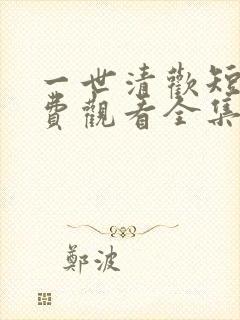 一世清歡短
費觀看全集
鄭波